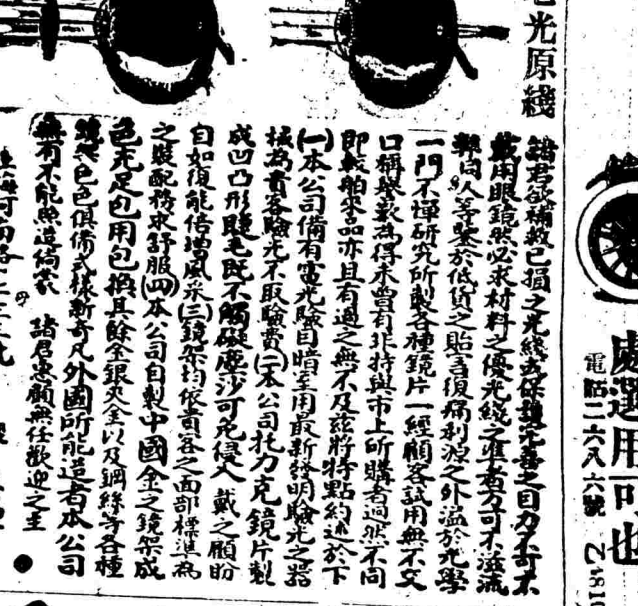 光原綫
諸君欲補救已損之光綫或保護完善之目力不可不
戴用眼鏡然必求材料之優光綫之準者方可不滋流
弊同人等鑒於低貨之貽害復痛利源之外溢於光學
一門不憚研究所製各種鏡片一經顧客試用無不交
口稱譽嘆為得未曾有非特與市上所購者迥然不同
即較舶來品亦且有過之無不及茲將特點約述於下
(一)本公司備有電光驗目暗室用最新發明驗光之器
械為貴客驗光不取驗費(二)本公司托力克鏡片製
成凹凸形睫毛既不觸礙塵沙可免侵入戴之顧盼
自如復能倍增風采(三)鏡架均依貴客之面部標準為
之裝配務求舒服(四)本公司自製中國金之鏡架成
色充足包用包換其餘金銀夾金以及鋼絲等各種
鏡架色色俱備式樣新奇凡外國所能造者本公司
無有不能照造倘蒙 諸君惠顧無任歡迎之至
處選用可也
電話二六八六號